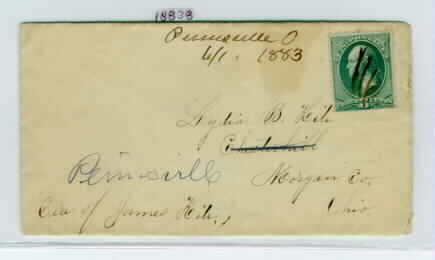 18838
Pennsville O
6/1. 1883
Lydia B. Hile
Chesterhill
Pennsvill
Morgan Co.
Care of James Hile,
Ohio.